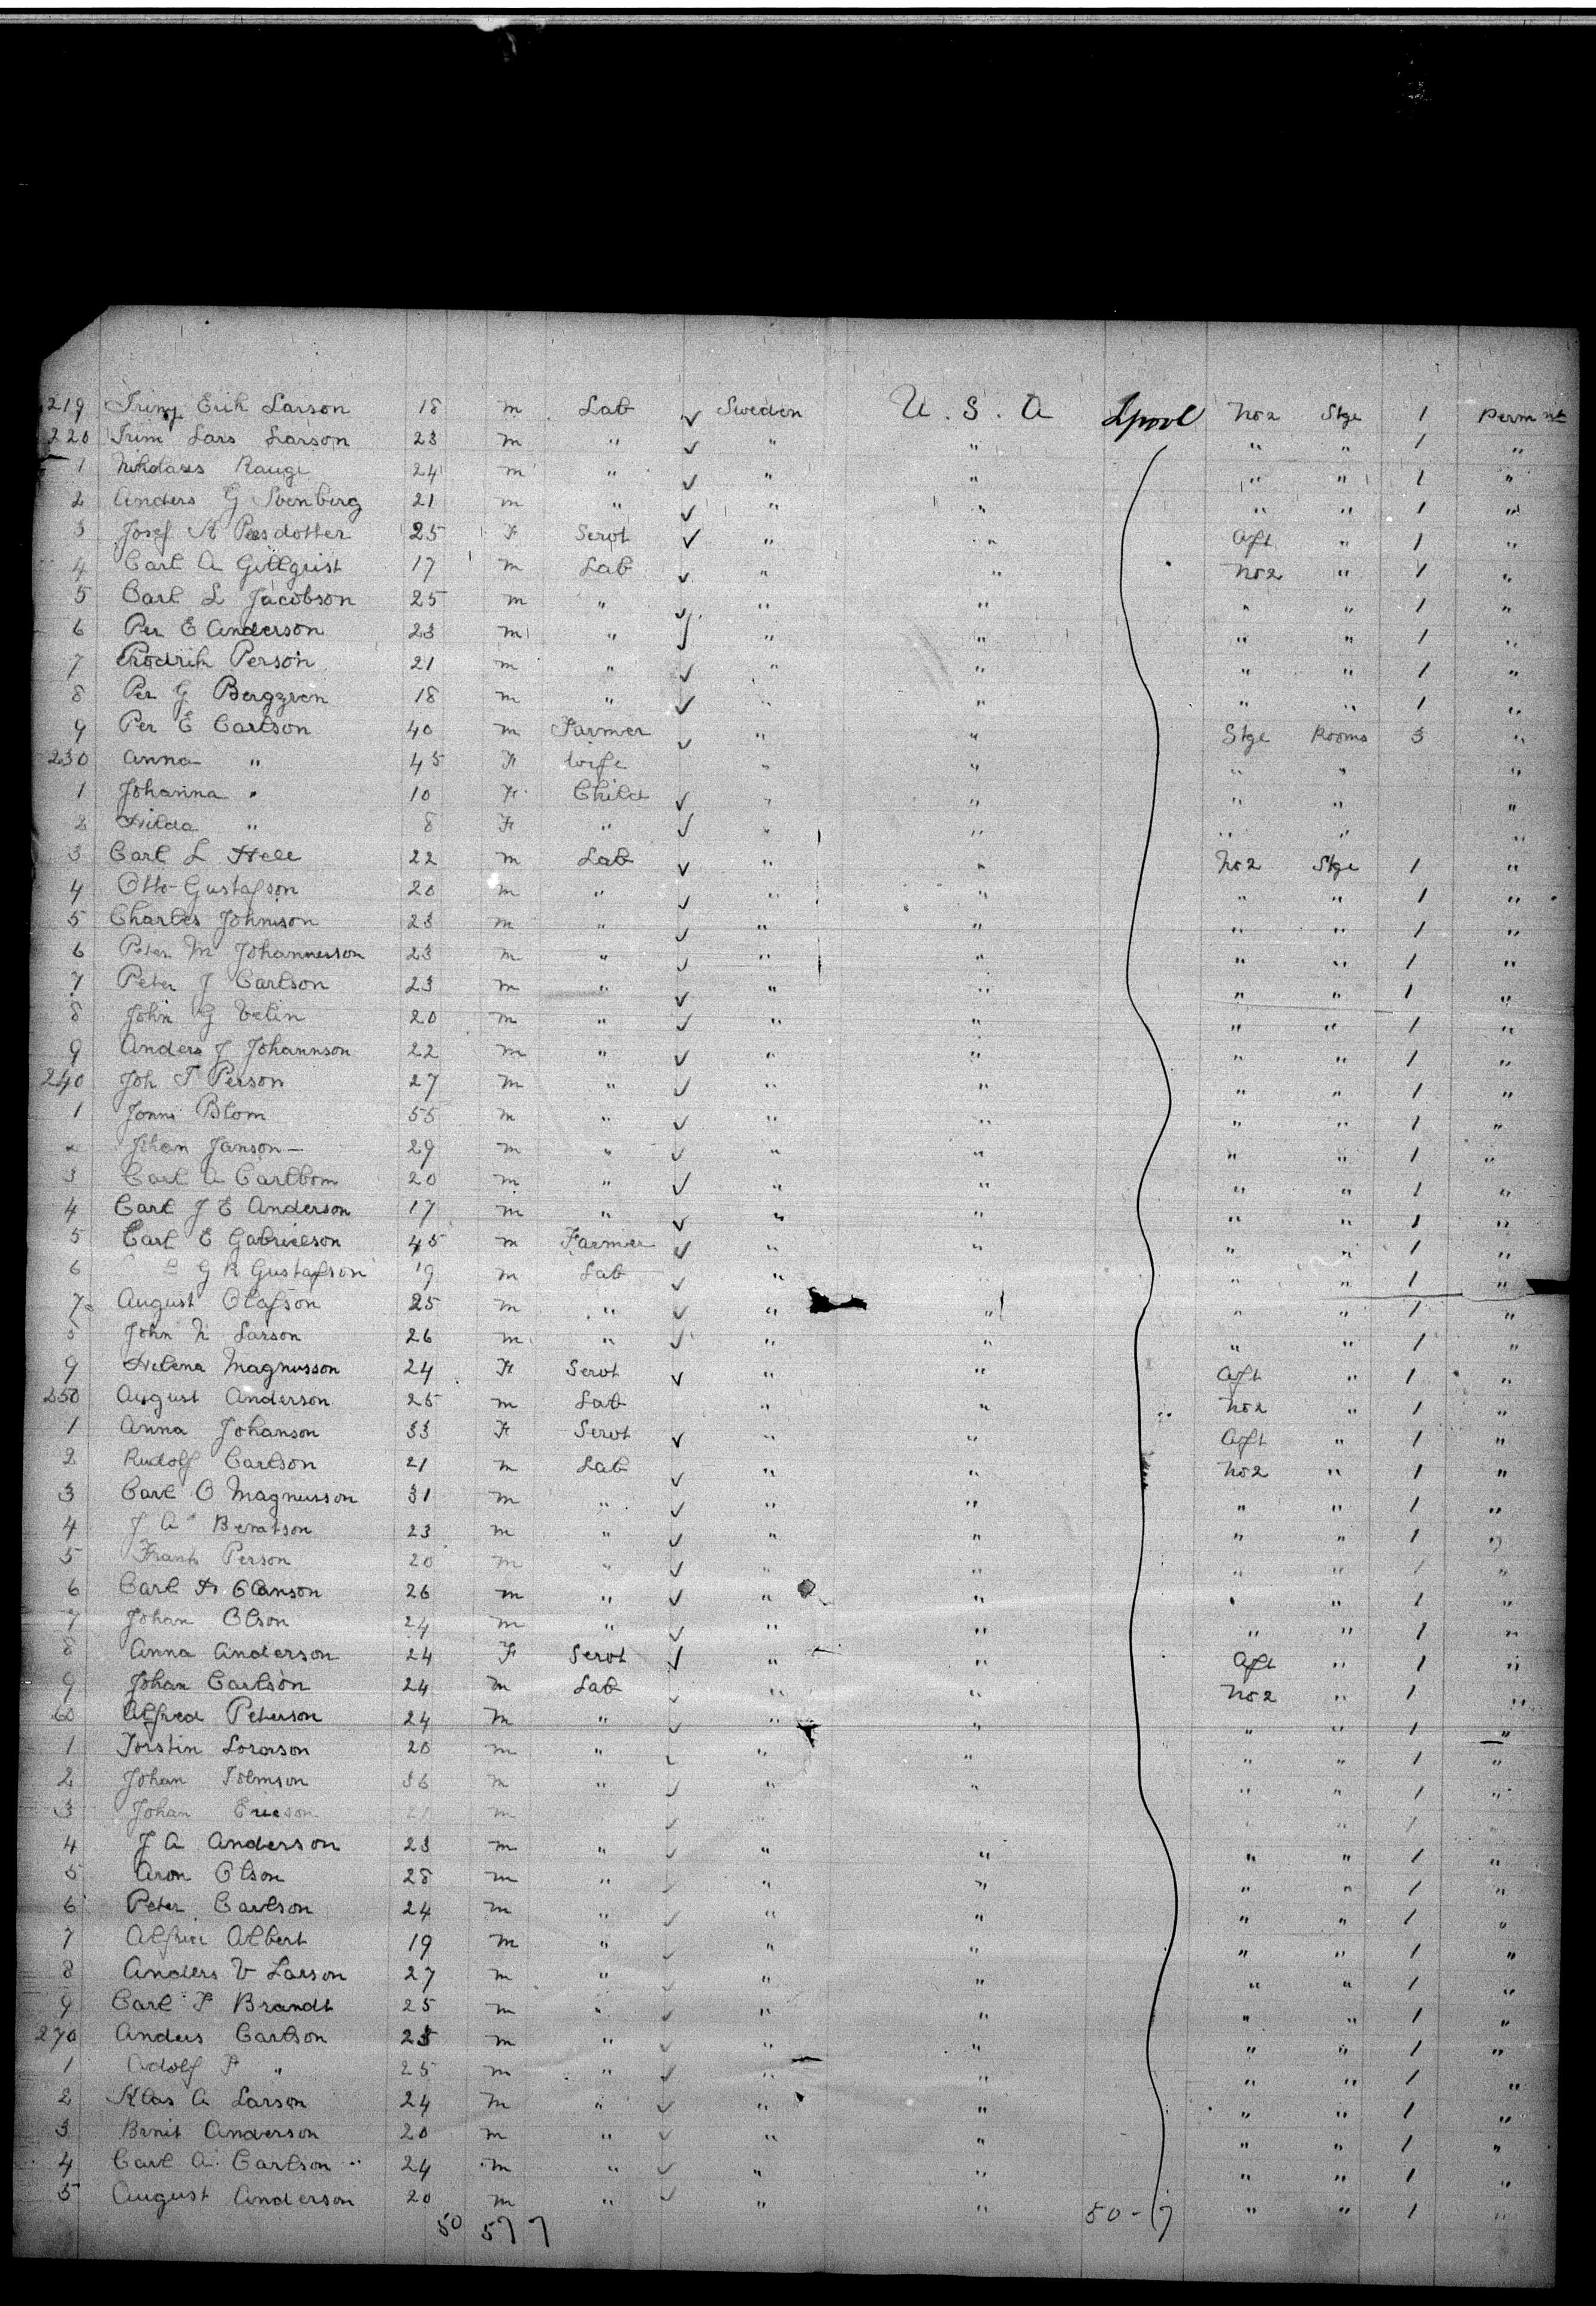 219 Erik Larson 18 m Lab Sweden U. S. A Lpool No 2 Stge 1 Permnt
220 Lars Larson 23 m " " " " " 1 "
1 24 m " " " " " 1 "
2 Anders G 21 m " " " " " 1 "
3 Josef 25 F Servt " " Aft " 1 "
4 Carl A 17 m Lab " " No 2 " 1 "
5 Carl L Jacobson 25 m " " " " " 1 "
6 Per E Anderson 23 m " " " " " 1 "
7 Person 21 m " " " " " 1 "
8 Per G 18 m " " " " " 1 "
9 Per E Carlson 40 m Farmer " " Stge Rooms 3 "
230 Anna " 45 F Wife " " " " "
1 Johanna " 10 F Child " " " " "
2 Hilda " 8 F " " " " " "
3 Carl L 22 m Lab " " No 2 Stge 1 "
4 Otto Gustafson 20 m " " " " " 1 "
5 Charles Johnson 23 m " " " " " 1 "
6 Peter M Johannesson 23 m " " " " " 1 "
7 Peter J Carlson 23 m " " " " " 1 "
8 John G Velin 20 m " " " " " 1 "
9 Anders J Johannson 22 m " " " " " 1 "
240 Joh Person 27 m " " " " " 1 "
1 Blom 55 m " " " " " 1 "
2 Johan Janson 29 m " " " " " 1 "
3 Carl A Carlbom 20 m " " " " " 1 "
4 Carl J E Anderson 17 m " " " " " 1 "
5 Carl E Gabrielson 45 m Farmer " " " " 1 "
6 G R Gustafson 19 m Lab " " " " 1 "
7 August Olafson 25 m " " " " " 1 "
8 John N Larson 26 m " " " " " 1 "
9 Helena Magnusson 24 F Servt " " Aft " 1 "
250 August Anderson 25 m Lab " " No 2 " 1 "
1 Anna Johanson 33 F Servt " " Aft " 1 "
2 Rudolf Carlson 21 m Lab " " No 2 " 1 "
3 Carl O Magnusson 31 m " " " " " 1 "
4 J A 23 m " " " " " 1 "
5 Frank Person 20 m " " " " " 1 "
6 Carl 26 m " " " " " 1 "
7 Johan Olson 24 m " " " " " 1 "
8 Anna Anderson 24 F Servt " " Aft " 1 "
9 Johan Carlson 24 m Lab " " No 2 " 1 "
60 Alfred Peterson 24 m " " " " " 1 "
1 Torstin 20 m " " " " " 1 "
2 Johan 36 m " " " " " 1 "
3 Johan Ericson m " " 1 "
4 J A Anderson 23 m " " " " " 1 "
5 Aron Olson 28 m " " " " " 1 "
6 Peter Carlson 24 m " " " " " 1 "
7 Albert 19 m " " " " " 1 "
8 Anders V Larson 27 m " " " " " 1 "
9 Carl Brandt 25 m " " " " " 1 "
270 Anders Carlson m " " " " " 1 "
1 Adolf " 25 m " " " " " 1 "
2 Klas A Larson 24 m " " " " " 1 "
3 Anderson 20 m " " " " " 1 "
4 Carl A Carlson 24 m " " " " " 1 "
5 August Anderson 20 m " " " " " 1 "
50 57 7 50 - 7